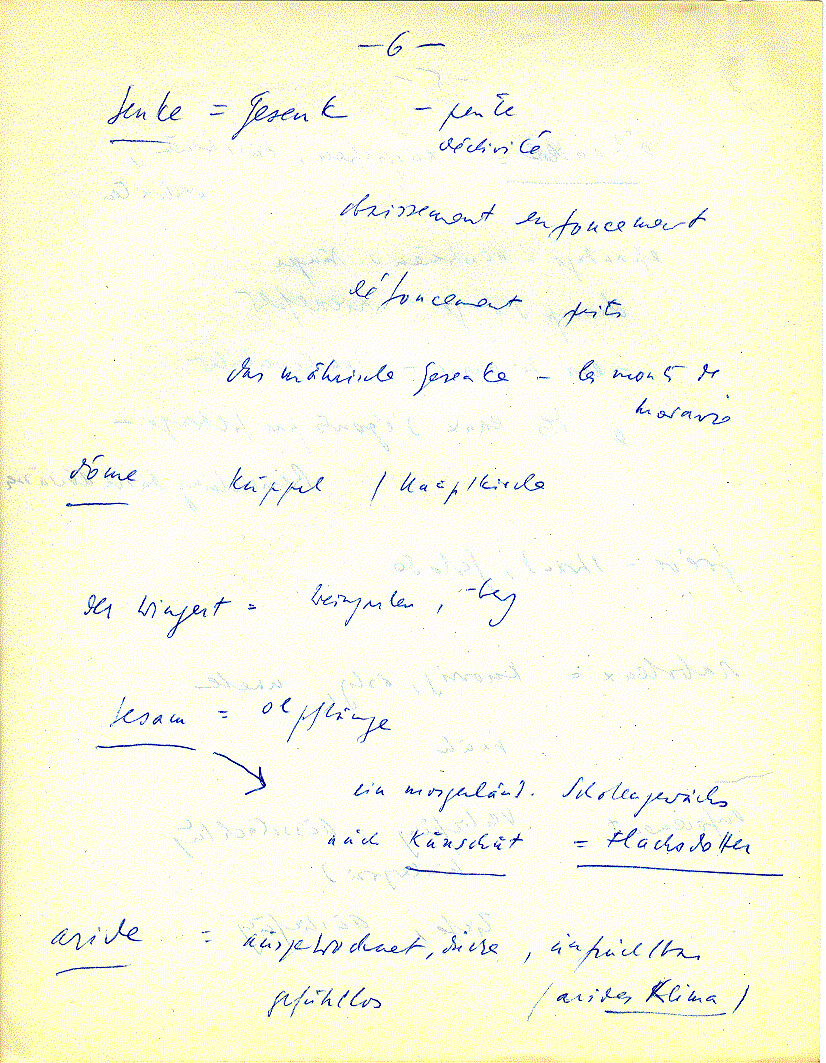 — 6 —
Senke = Gesenk – pente
déclivité
abaissement enfoncement
défoncement puits
das mährische Gesenke – les monts de
Moravie
dôme Küppel /
der Wingert = Weingarten, -berg
Sesam = Oelpflanze
ein morgenländ. Schotengewächs
auch Künschüt = Flachsdotter
aride = ausgetrocknet, dürre, unfruchtbar
gefühllos (arides Klima)